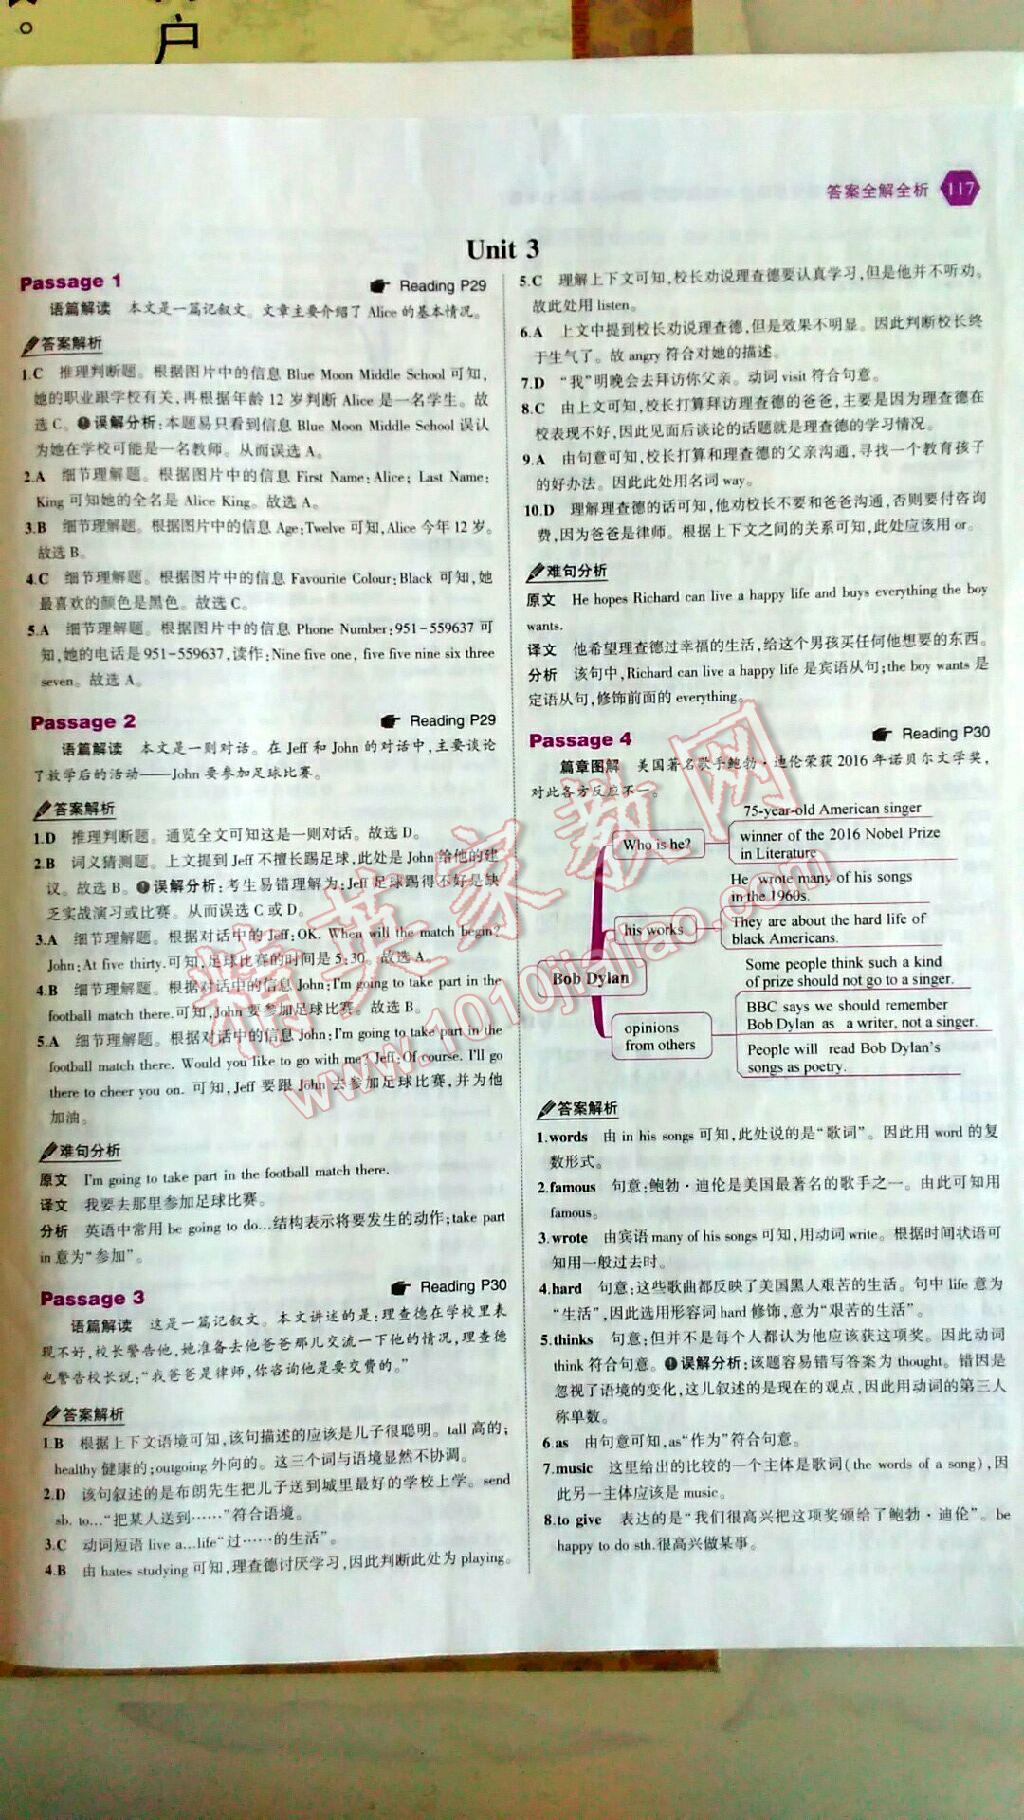 户
答案全解全析 117
Unit 3
Passage 1 Reading P29
语篇解读 本文是一篇记叙文。文章主要介绍了 Alice 的基本情况。
答案解析
1.C 推理判断题。根据图片中的信息 Blue Moon Middle School 可知,
她的职业跟学校有关,再根据年龄 12 岁判断 Alice 是一名学生。故
选 C。误解分析:本题易只看到信息 Blue Moon Middle School 误认
为她在学校可能是一名教师。从而误选 A。
2.A 细节理解题。根据图片中的信息 First Name: Alice; Last Name:
King 可知她的全名是 Alice King。故选 A。
3.B 细节理解题。根据图片中的信息 Age:Twelve 可知, Alice 今年 12 岁。
故选 B。
4.C 细节理解题。根据图片中的信息 Favourite Colour: Black 可知,她
最喜欢的颜色是黑色。故选 C。
5.A 细节理解题。根据图片中的信息 Phone Number:951-559637 可
知,她的电话是 951-559637,读作: Nine five one, five five nine six three
seven。故选 A。
Passage 2 Reading P29
语篇解读 本文是一则对话。在 Jeff 和 John 的对话中,主要谈论
了放学后的活动——John 要参加足球比赛。
答案解析
1.D 推理判断题。通览全文可知这是一则对话。故选 D。
2.B 词义猜测题。上文提到 Jeff 不擅长踢足球,此处是 John 给他的建
议。故选 B。误解分析:考生易错理解为: Jeff 足球踢得不好是缺
乏实战演习或比赛。从而误选 C 或 D。
3.A 细节理解题。根据对话中的 Jeff:OK. When will the match begin?
John:At five thirty.可知,足球比赛的时间是 5:30。故选 A。
4.B 细节理解题。根据对话中的信息 John:I'm going to take part in the
football match there.可知,John 要参加足球比赛。故选 B。
5.A 细节理解题。根据对话中的信息 John:I'm going to take part in the
football match there. Would you like to go with me? Jeff: Of course. I'll go
there to cheer you on. 可知, Jeff 要跟 John 去参加足球比赛,并为他
加油。
难句分析
原文 I'm going to take part in the football match there.
译文 我要去那里参加足球比赛。
分析 英语中常用 be going to do…结构表示将要发生的动作;take part
in 意为“参加”。
Passage 3 Reading P30
语篇解读 这是一篇记叙文。本文讲述的是:理查德在学校里表
现不好,校长警告他,她准备去他爸爸那儿交流一下他的情况,理查德
也警告校长说:“我爸爸是律师,你咨询他是要交费的。”
答案解析
1.B 根据上下文语境可知,该句描述的应该是儿子很聪明。tall 高的;
healthy 健康的;outgoing 外向的。这三个词与语境显然不协调。
2.D 该句叙述的是布朗先生把儿子送到城里最好的学校上学。send
sb. to…“把某人送到……”符合语境。
3.C 动词短语 live a…life“过……的生活”。
4.B 由 hates studying 可知,理查德讨厌学习,因此判断此处为 playing。
5.C 理解上下文可知,校长劝说理查德要认真学习,但是他并不听劝。
故此处用 listen。
6.A 上文中提到校长劝说理查德,但是效果不明显。因此判断校长终
于生气了。故 angry 符合对她的描述。
7.D “我”明晚会去拜访你父亲。动词 visit 符合句意。
8.C 由上文可知,校长打算拜访理查德的爸爸,主要是因为理查德在
校表现不好,因此见面后谈论的话题就是理查德的学习情况。
9.A 由句意可知,校长打算和理查德的父亲沟通,寻找一个教育孩子
的好办法。因此此处用名词 way。
10.D 理解理查德的话可知,他劝校长不要和爸爸沟通,否则要付咨询
费,因为爸爸是律师。根据上下文之间的关系可知,此处应该用 or。
难句分析
原文 He hopes Richard can live a happy life and buys everything the boy
wants.
译文 他希望理查德过幸福的生活,给这个男孩买任何他想要的东西。
分析 该句中,Richard can live a happy life 是宾语从句;the boy wants 是
定语从句,修饰前面的 everything。
Passage 4 Reading P30
篇章图解 美国著名歌手鲍勃·迪伦荣获 2016 年诺贝尔文学奖,
对此各方反应不一。
Bob Dylan
Who is he?
75-year-old American singer
winner of the 2016 Nobel Prize
in Literature
his works
He wrote many of his songs
in the 1960s.
They are about the hard life of
black Americans.
opinions
from others
Some people think such a kind
of prize should not go to a singer.
BBC says we should remember
Bob Dylan as a writer, not a singer.
People will read Bob Dylan's
songs as poetry.
答案解析
1.words 由 in his songs 可知,此处说的是“歌词”。因此用 word 的复
数形式。
2.famous 句意:鲍勃·迪伦是美国最著名的歌手之一。由此可知用
famous。
3.wrote 由宾语 many of his songs 可知,用动词 write。根据时间状语可
知用一般过去时。
4.hard 句意:这些歌曲都反映了美国黑人艰苦的生活。句中 life 意为
“生活”,因此选用形容词 hard 修饰,意为“艰苦的生活”。
5.thinks 句意:但并不是每个人都认为他应该获这项奖。因此动词
think 符合句意。误解分析:该题容易错写答案为 thought。错因是
忽视了语境的变化,这儿叙述的是现在的观点,因此用动词的第三人
称单数。
6.as 由句意可知,as“作为”符合句意。
7.music 这里给出的比较的一个主体是歌词(the words of a song),因
此另一主体应该是 music。
8.to give 表达的是“我们很高兴把这项奖颁给了鲍勃·迪伦”。be
happy to do sth.很高兴做某事。
精英家教网
www.1010jiajiao.com